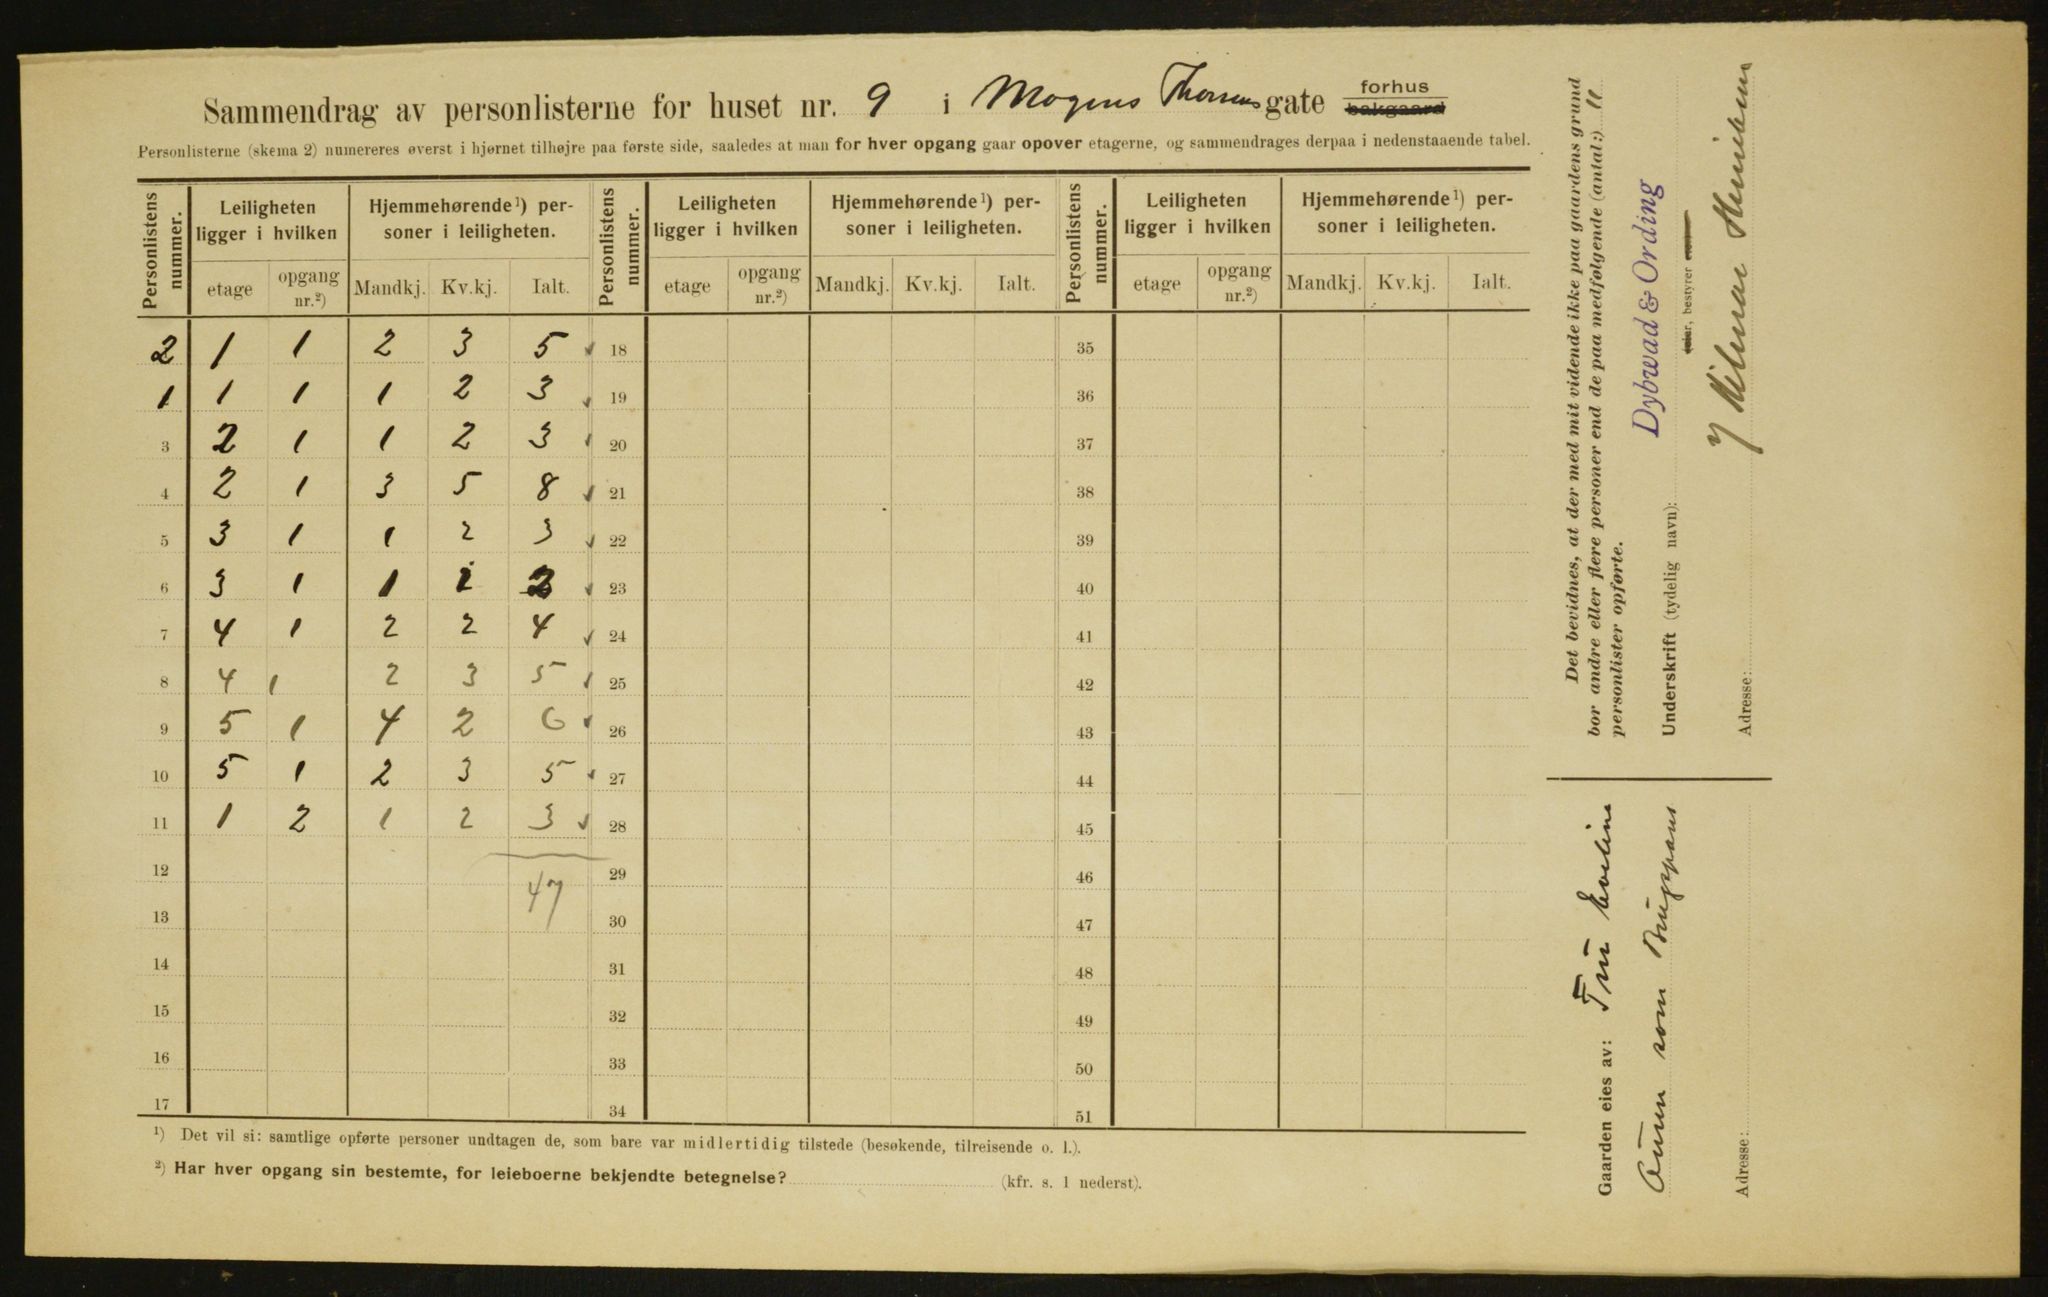 Sammendrag av personlisterne for huset nr. 9 i Mogens Thorsens gate forhus bakgaard
Personlisterne (skema 2) numereres øverst i hjørnet tilhøjre paa første side, saaledes at man for hver opgang gaar opover etagerne, og sammendrages derpaa i nedenstaaende tabel.
Personlistens nummer. Leiligheten ligger i hvilken Hjemmehørende ¹) personer i leiligheten. Personlistens nummer. Leiligheten ligger i hvilken Hjemmehørende ¹) personer i leiligheten. Personlistens nummer. Leiligheten ligger i hvilken Hjemmehørende ¹) personer i leiligheten.
etage opgang nr.²) Mandkj. Kv.kj. Ialt. etage opgang nr.²) Mandkj. Kv.kj. Ialt. etage opgang nr.²) Mandkj. Kv.kj. Ialt.
2 1 1 2 3 5 18 35
1 1 1 1 2 3 19 36
3 2 1 1 2 3 20 37
4 2 1 3 5 8 21 38
5 3 1 1 2 3 22 39
6 3 1 1 1 2 23 40
7 4 1 2 2 4 24 41
8 4 1 2 3 5 25 42
9 5 1 4 2 6 26 43
10 5 1 2 3 5 27 44
11 1 2 1 2 3 28 45
12 47 29 46
13 30 47
14 31 48
15 32 49
16 33 50
17 34 51
¹) Det vil si: samtlige opførte personer undtagen de, som bare var midlertidig tilstede (besøkende, tilreisende o. l.).
²) Har hver opgang sin bestemte, for leieboerne bekjendte betegnelse? (kfr. s. 1 nederst).
Det bevidnes, at der med mit vidende ikke paa gaardens grund
bor andre eller flere personer end de paa medfølgende (antal:) 11
personlister opførte.
Dybwad & Ording
Underskrift (tydelig navn): eier, bestyrer
Hilmar
Adresse:
Gaarden eies av: Fru
som
Adresse: